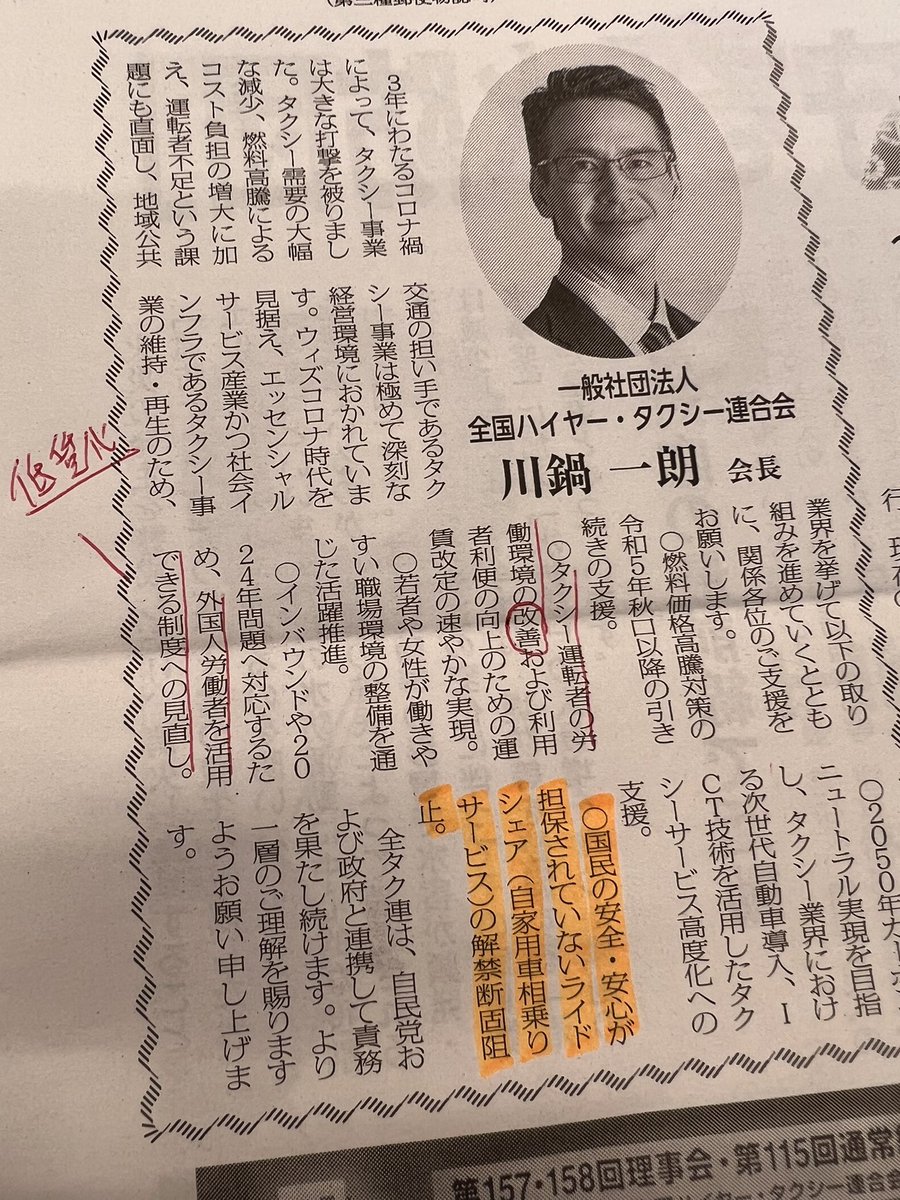 一般社団法人
全国ハイヤー・タクシー連合会
川鍋 一朗 会長
3年にわたるコロナ禍
によって、タクシー事業
は大きな打撃を被りまし
た。タクシー需要の大幅
な減少、燃料高騰による
コスト負担の増大に加
え、運転者不足という課
題にも直面し、地域公共
交通の担い手であるタク
シー事業は極めて深刻な
経営環境におかれていま
す。ウィズコロナ時代を
見据え、エッセンシャル
サービス産業かつ社会イ
ンフラであるタクシー事
業の維持・再生のため、
業界を挙げて以下の取り
組みを進めていくととも
に、関係各位のご支援を
お願いします。
○燃料価格高騰対策の
令和5年秋口以降の引き
続きの支援。
○タクシー運転者の労
働環境の改善および利用
者利便の向上のための運
賃改定の速やかな実現。
○若者や女性が働きや
すい職場環境の整備を通
じた活躍推進。
○インバウンドや20
24年問題へ対応するた
め、外国人労働者を活用
できる制度への見直し。
○2050年カーボン
ニュートラル実現を目指
し、タクシー業界におけ
る次世代自動車導入、I
CT技術を活用したタク
シーサービス高度化への
支援。
○国民の安全・安心が
担保されていないライド
シェア（自家用車相乗り
サービス）の解禁断固阻
止。
全タク連は、自民党お
よび政府と連携して責務
を果たし続けます。より
一層のご理解を賜ります
ようお願い申し上げま
す。
第157・158回理事会・第115回通常
タクシー連合会